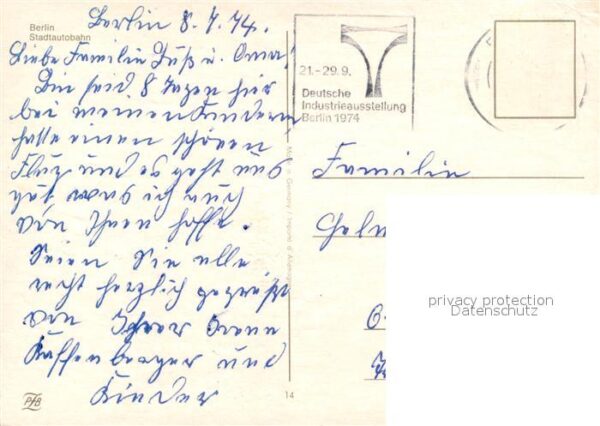 Berlin
Stadtautobahn
Berlin 8.7.74.
Liebe Familie Duß u. Oma!
Bin seid 8 Tagen hier
bei meinen Kindern
hatte einen schönen
Flug und es geht uns
gut, was ich auch
von Ihnen hoffe.
Seien Sie alle
recht herzlich gegrüßt
von Ihrer Anna
Kaffenberger und
Kinder
21.-29.9.
Deutsche
Industrieausstellung
Berlin 1974
Familie
privacy protection
Datenschutz
PfB
14